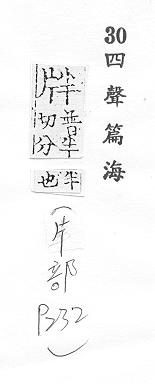 30四聲篇海
牉普半切分
半也
(片部 P32)